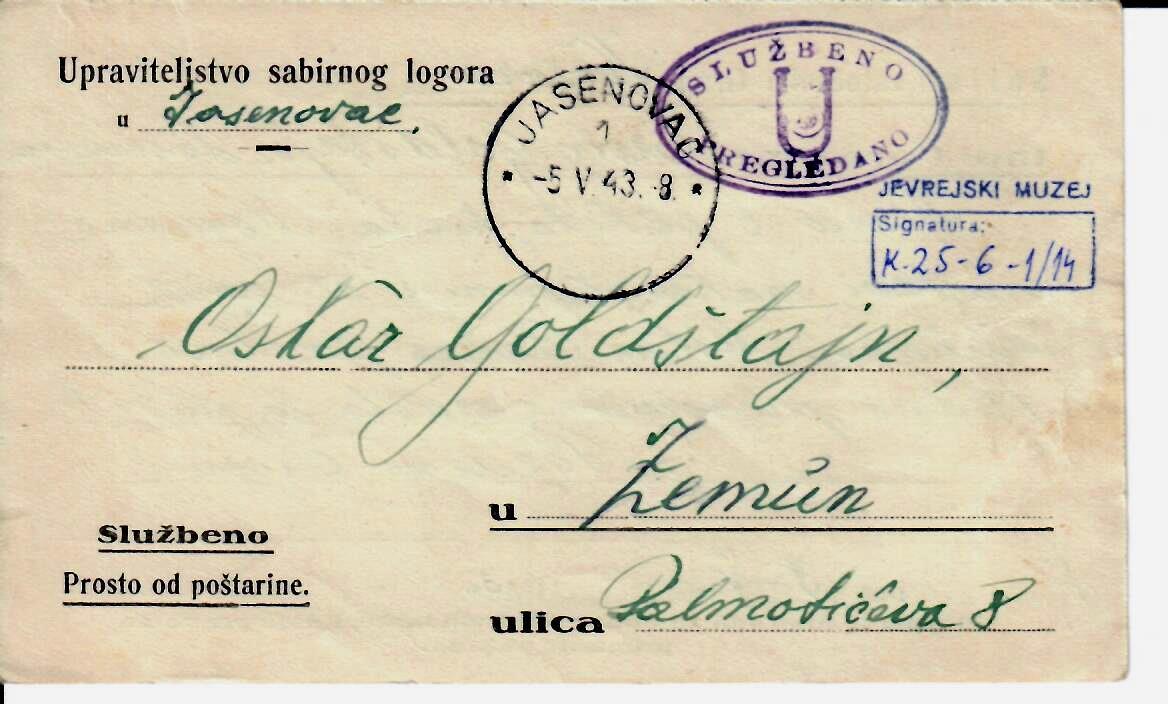 Upraviteljstvo sabirnog logora
u Jasenovac,
JASENOVAC
1
-5 V. 43. 8.
SLUŽBENO
U
PREGLEDANO
JEVREJSKI MUZEJ
Signatura:
K-25-6-1/14
Oskar Goldštajn,
u Zemun
Službeno
Prosto od poštarine.
ulica Palmotićeva 8